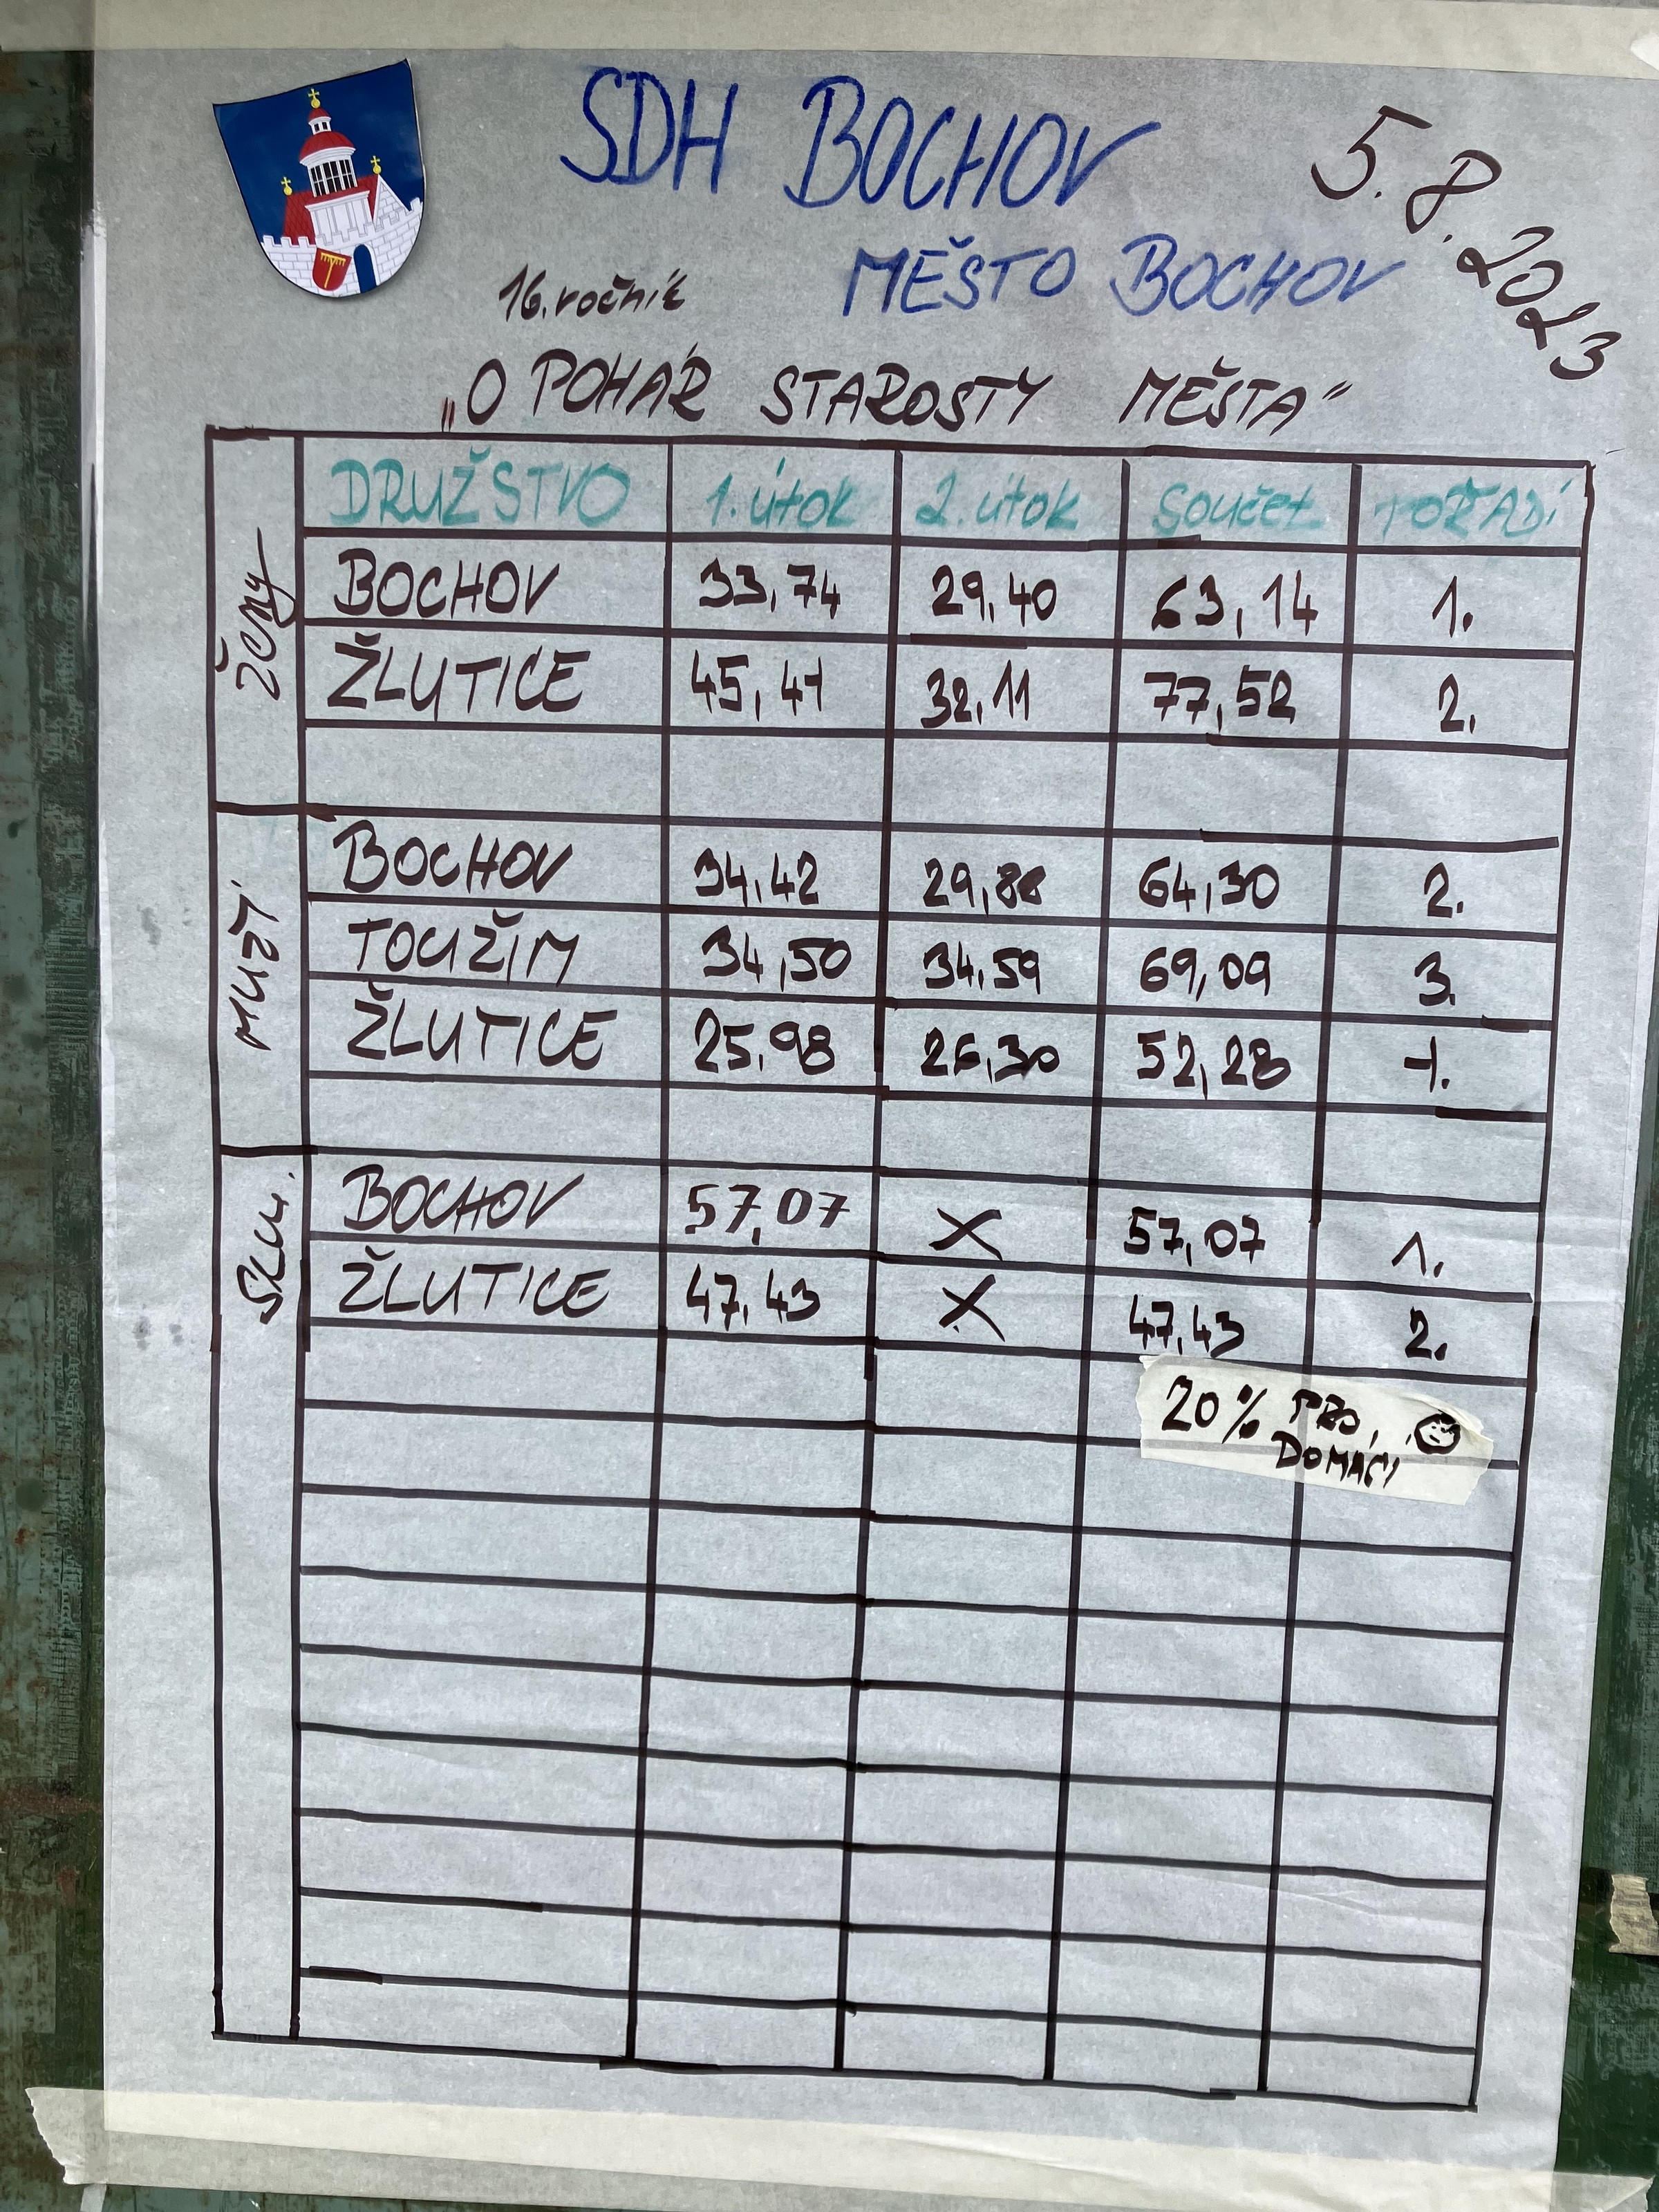 SDH BOCHOV
5.8.2023
MĚSTO BOCHOV
16. ročník
„O POHÁR STAROSTY MĚSTA"
DRUŽSTVO 1. útok 2. útok Součet POŘADÍ
ženy
BOCHOV 33,74 29,40 63,14 1.
ŽLUTICE 45,41 32,11 77,52 2.
MUŽI
BOCHOV 34,42 29,88 64,30 2.
TOUŽIM 34,50 34,59 69,09 3.
ŽLUTICE 25,98 26,30 52,28 1.
BOCHOV 57,07 X 57,07 1.
ŽLUTICE 47,43 X 47,43 2.
20% PRO
DOMÁCÍ